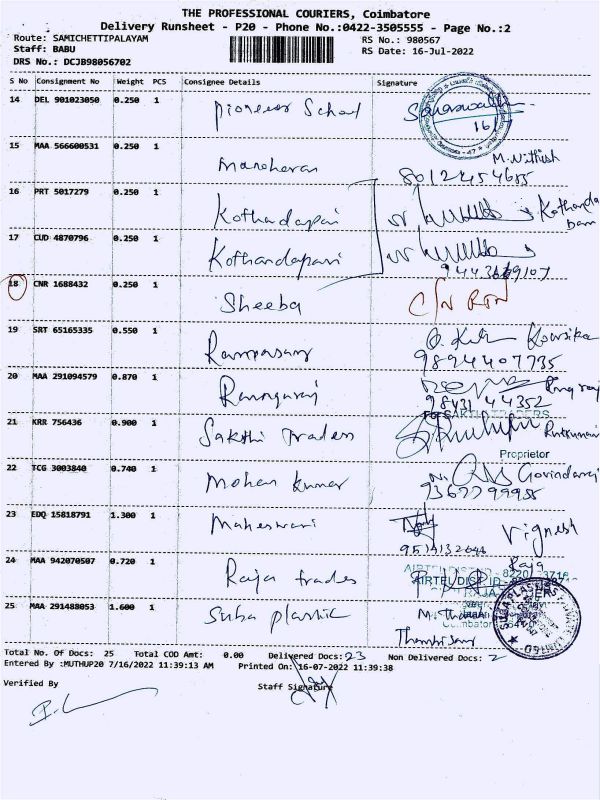 THE PROFESSIONAL COURIERS, Coimbatore
Delivery Runsheet - P20 - Phone No.:0422-3505555 - Page No.:2
Route: SAMICHETTIPALAYAM RS No.: 980567
Staff: BABU RS Date: 16-Jul-2022
DRS No.: DCJB98056702
S No Consignment No Weight PCS Consignee Details Signature
14 DEL 901023050 0.250 1 Pioneer School Saraswathi
16/7
15 MAA 566600531 0.250 1 Manoharan M. Nithish
8012454655
16 PRT 5017279 0.250 1 Kothandapani Kothanda
17 CUD 4870796 0.250 1 Kothandapani
18 CNR 1688432 0.250 1 Sheeba C/N RTN
19 SRT 65165335 0.550 1 Ramposamy Kowsika
9894407735
20 MAA 291094579 0.870 1 Rangaraj Rangaraj
9843144352
For SAKTHI TRADERS
21 KRR 756436 0.900 1 Sakthi Traders
Proprietor
22 TCG 3003840 0.740 1 Mohan Kumar Govindaraj
23 EDQ 15818791 1.300 1 Maheswari Vignesh
24 MAA 942070507 0.720 1 Raja trades Raja
25 MAA 291488053 1.600 1 Suba plastic
Total No. Of Docs: 25 Total COD Amt: 0.00 Delivered Docs: 23 Non Delivered Docs: 2
Entered By :MUTHUP20 7/16/2022 11:39:13 AM Printed On: 16-07-2022 11:39:38
Verified By Staff Signature